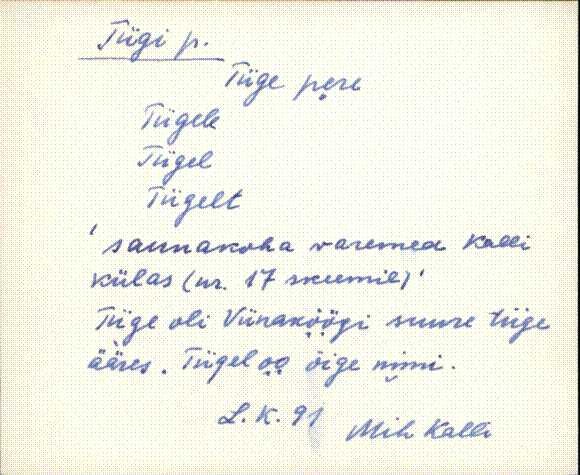 Tiigi p.
Tiige pere
Tiigele
Tiigel
Tiigelt
'saunakoha varemed Kalli
külas (nr. 17 skeemil)'
Tiige oli Viinaköögi suure tiige
ääres. Tiigel oo õige nimi.
L. K. 91 Mih Kalli